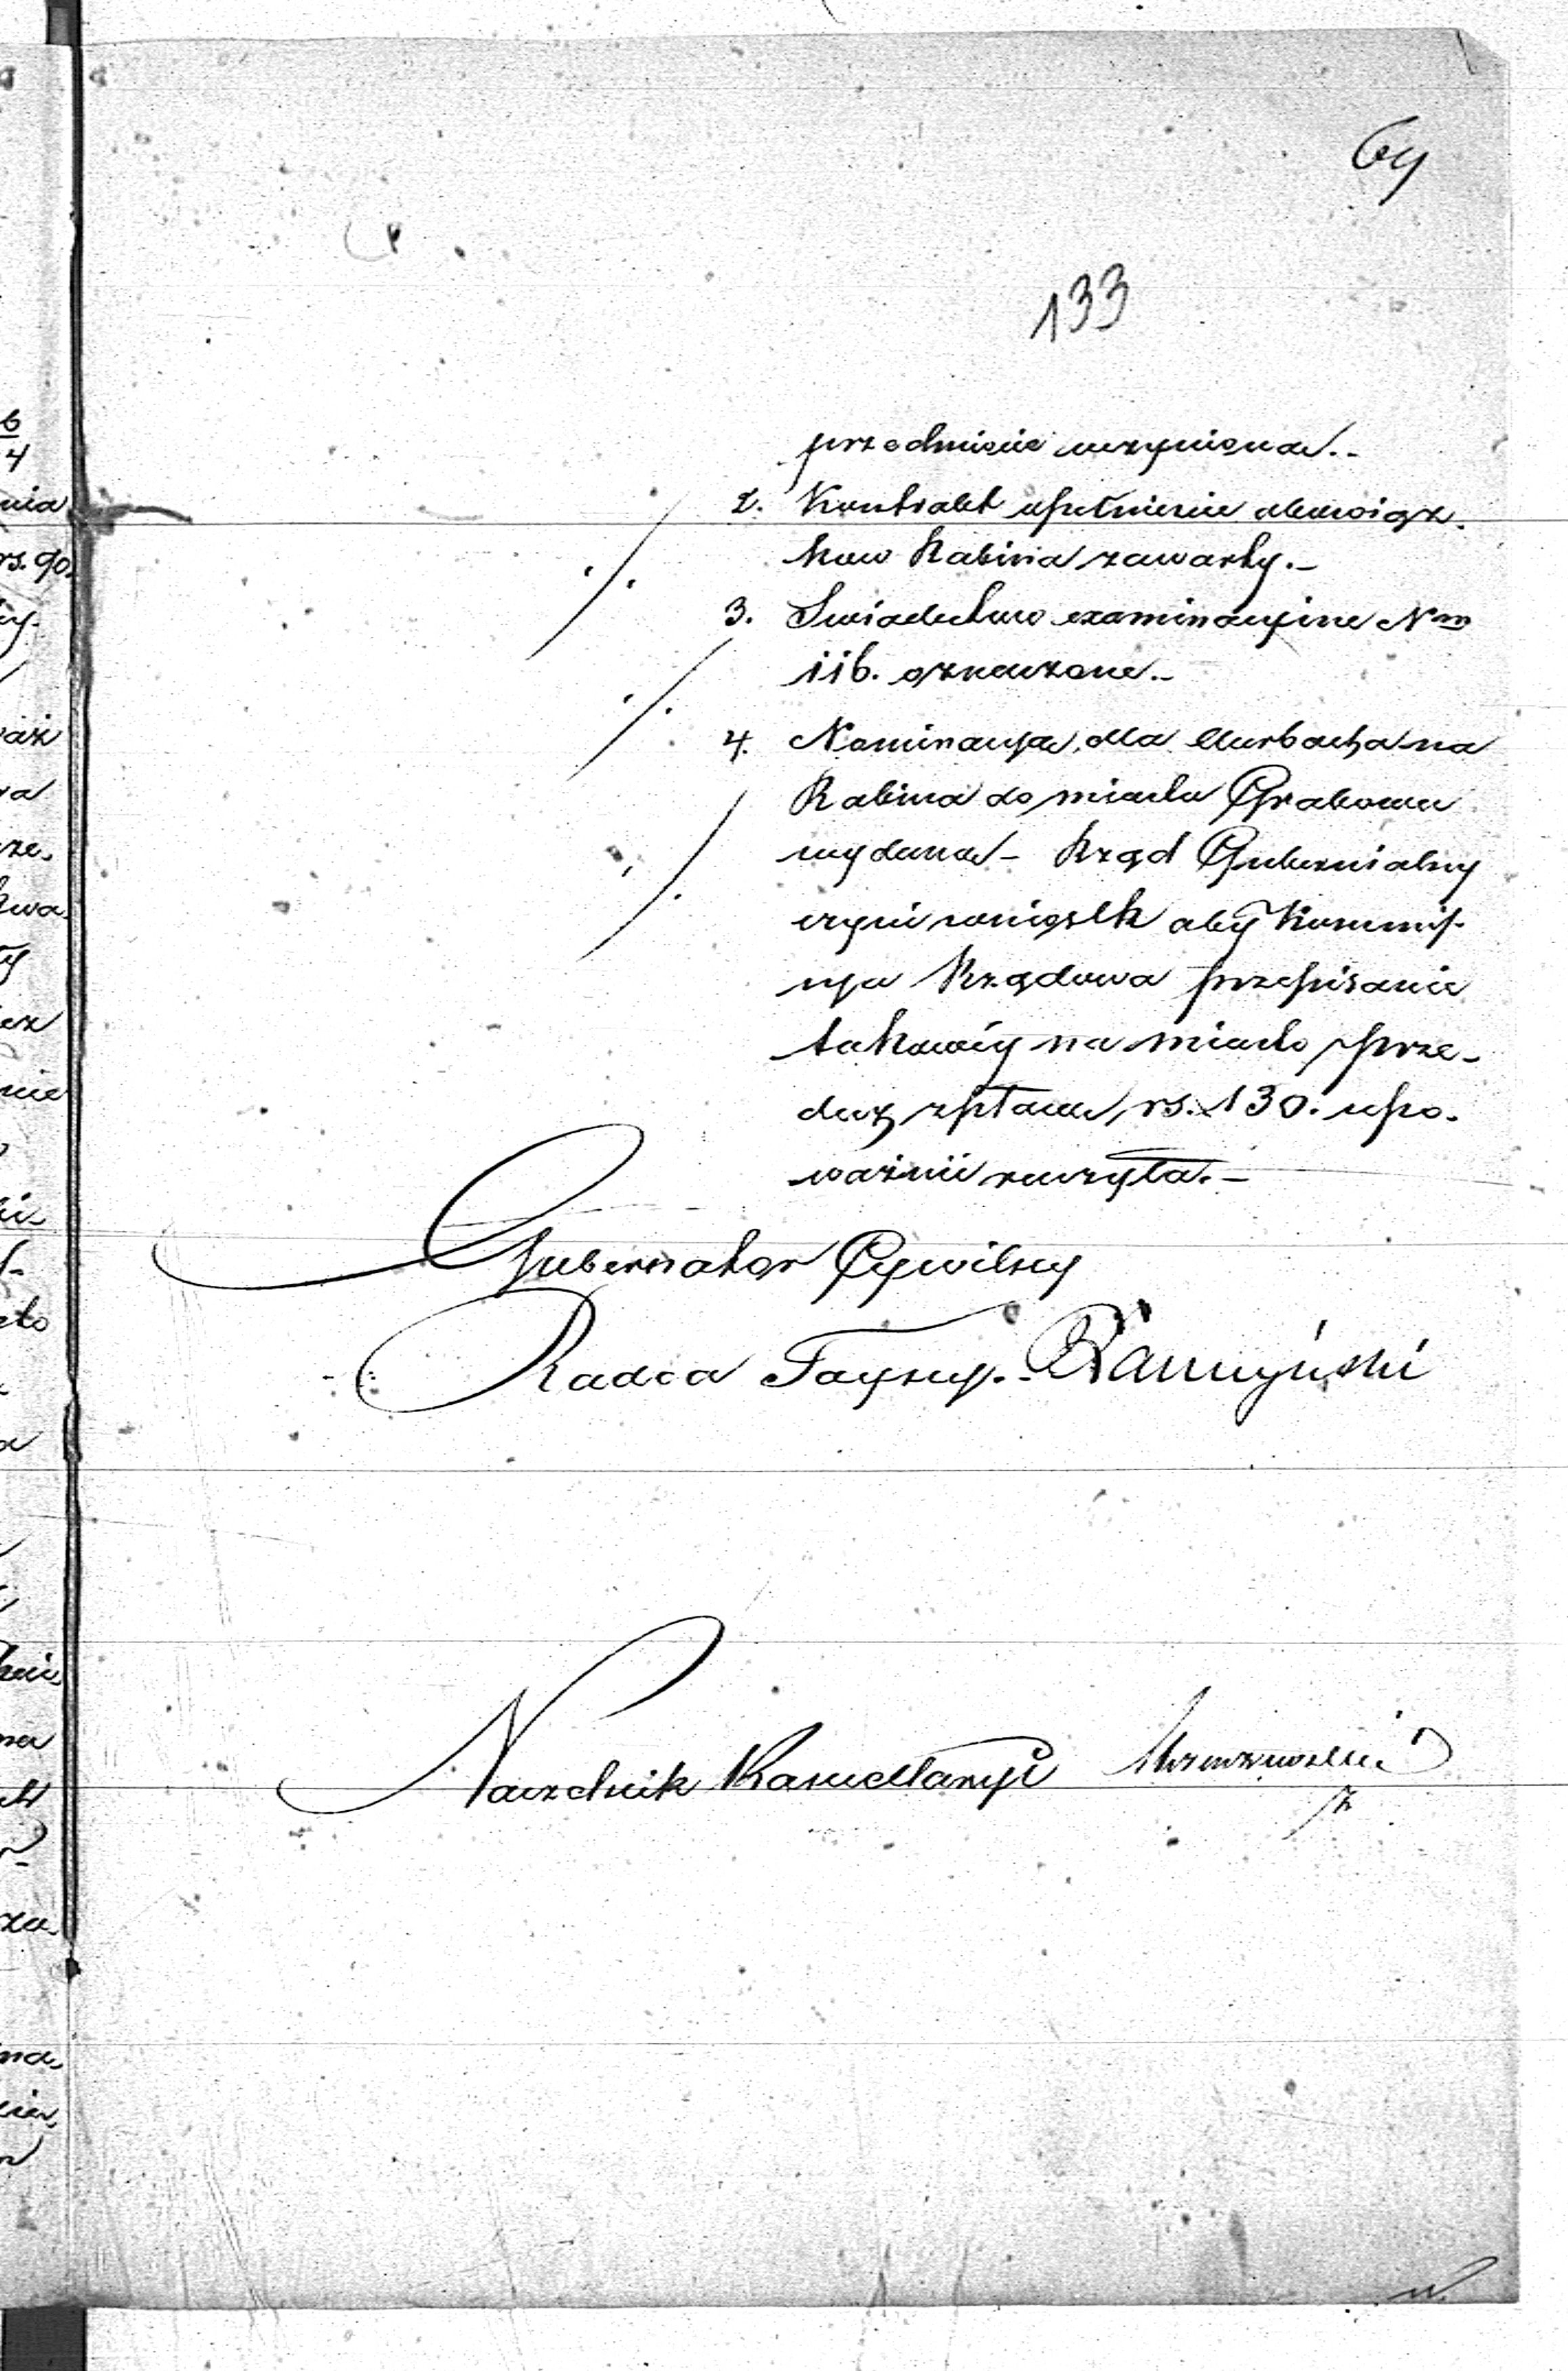 69
133
przedmiocie uczyniona.-
2. Kontrakt o pełnienie obowiąz-
kow Rabina zawarty.-
3. Swiadectwo examinacyine Nrm
116. oznaczone.-
4. Nominacja, dla Aurbacha na
Rabina do miasta Grabowa
wydana - Rząd Gubernialny
czyni wniosek aby Kommis-
syja Rządowa przepisanie
takowéy na miasto Prze-
decz z płacą rs. 130. upo-
ważnić raczyła.-
Gubernator Cywilny
Radca Tayny.
Naczelnik Kancellaryi